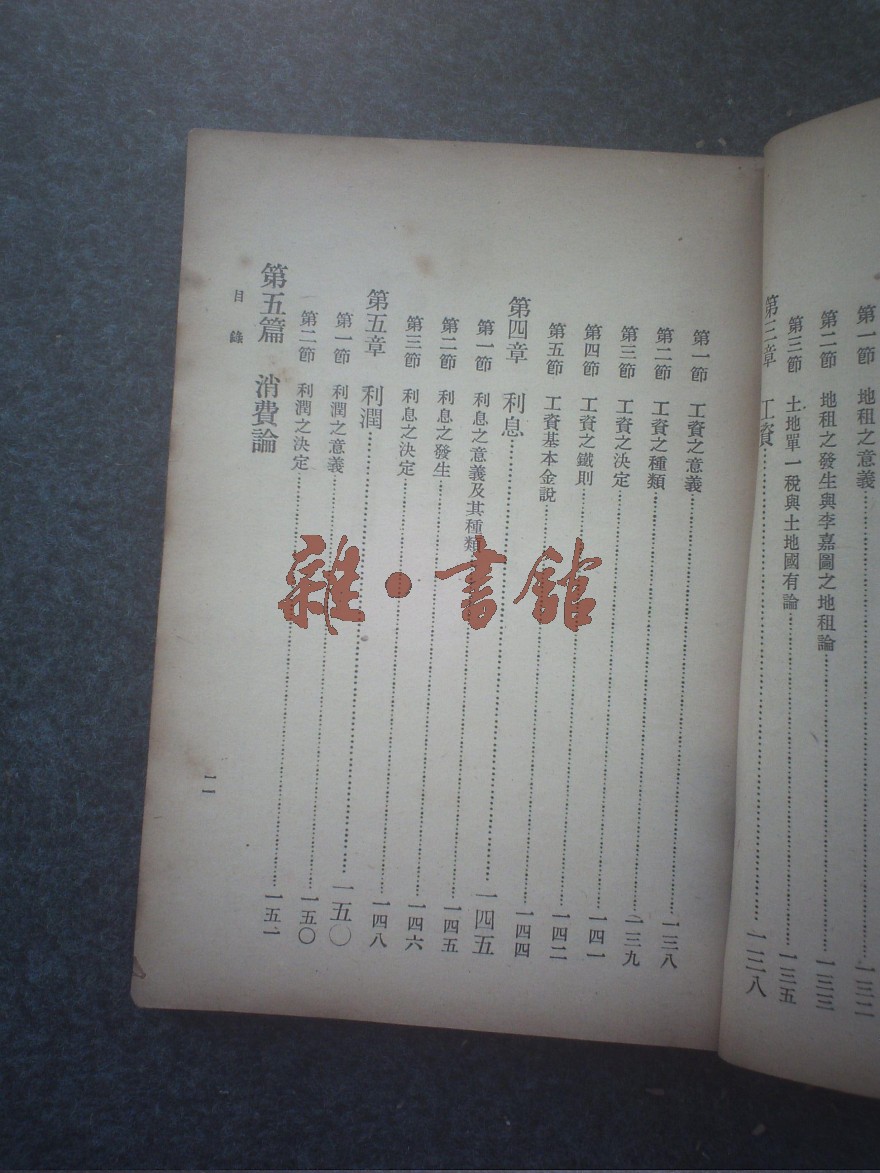 第一節 地租之意義……一三二
第二節 地租之發生與李嘉圖之地租論……一三三
第三節 土地單一税與土地國有論……一三五
第三章 工資……一三八
第一節 工資之意義……一三八
第二節 工資之種類……一三九
第三節 工資之決定……一四一
第四節 工資之鐵則……一四二
第五節 工資基本金說……一四四
第四章 利息……一四五
第一節 利息之意義及其種類……一四五
第二節 利息之發生……一四六
第三節 利息之決定……一四八
第五章 利潤……一五〇
第一節 利潤之意義……一五〇
第二節 利潤之決定……一五一
第五篇 消費論
目錄
一一
雜·書館